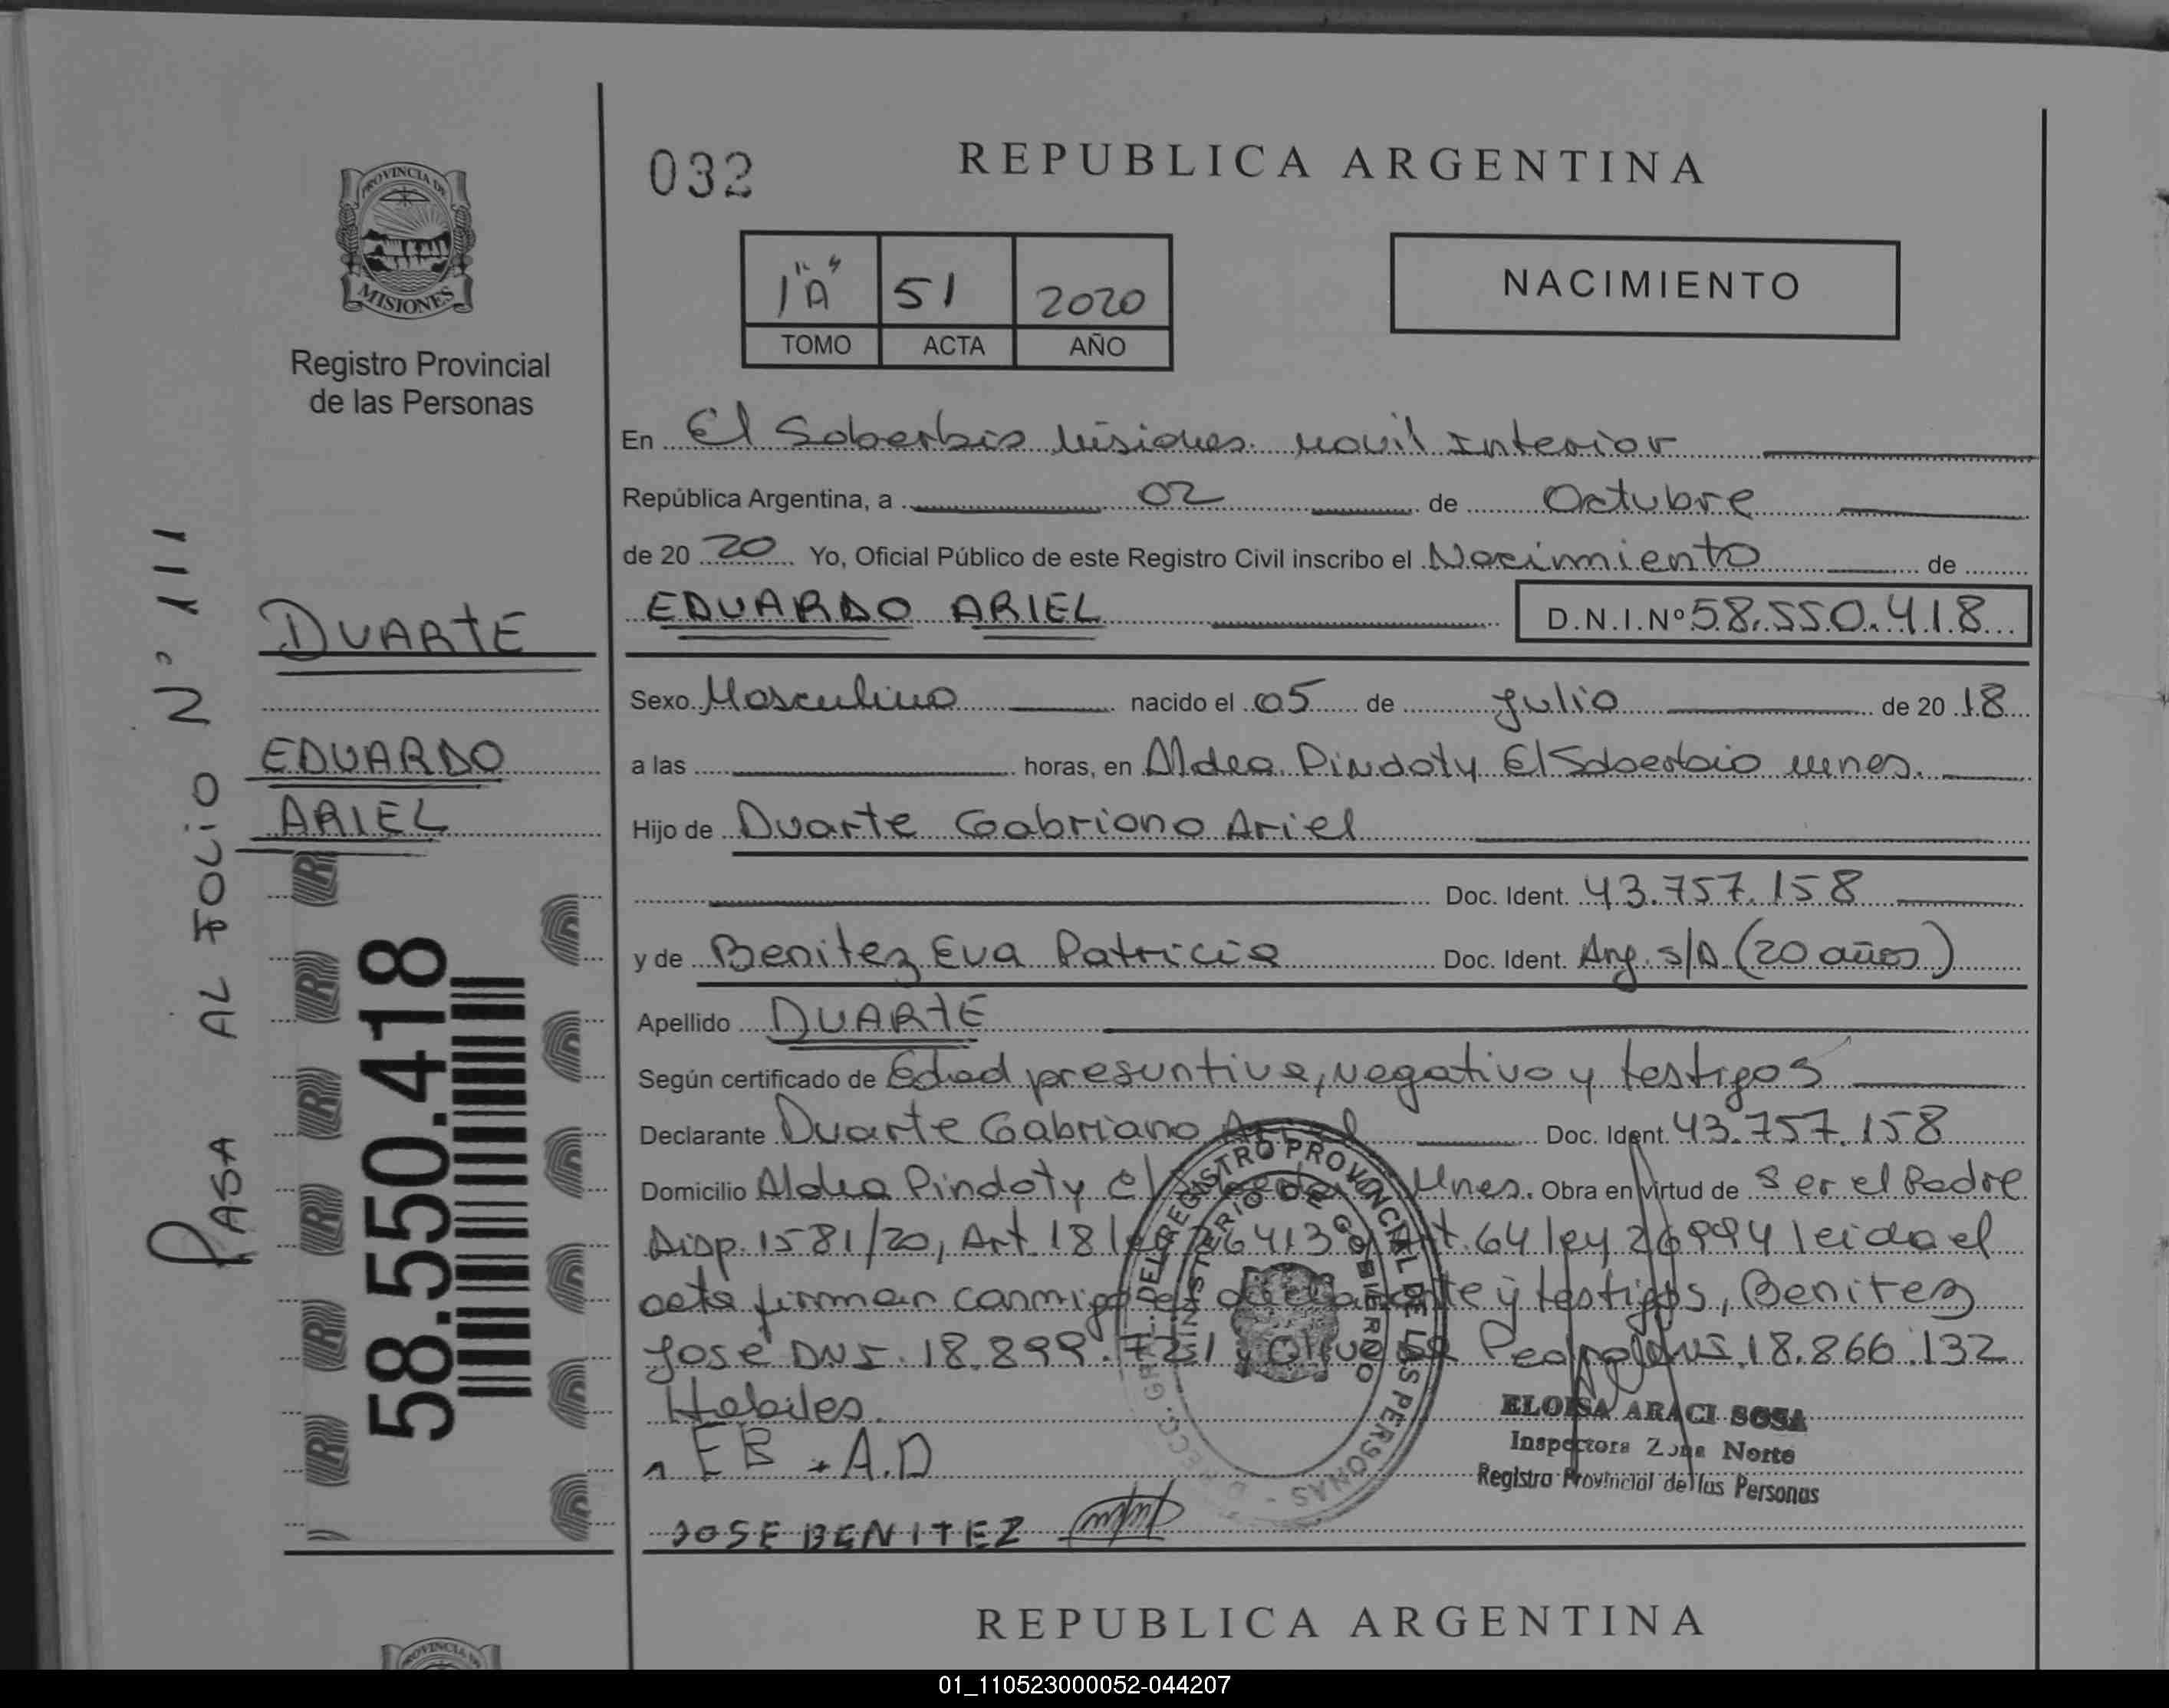 032
REPUBLICA ARGENTINA
PROVINCIA DE
MISIONES
Registro Provincial
de las Personas
1 "A" 51 2020
TOMO ACTA AÑO
NACIMIENTO
En El Soberbio Misiones. movil Interior
República Argentina, a 02 de Octubre
de 20 20 Yo, Oficial Público de este Registro Civil inscribo el Nacimiento de
EDUARDO ARIEL D.N.I.Nº 58.550.418
DUARTE
EDUARDO
ARIEL
PASA AL FOLIO N° 111
58.550.418
Sexo Masculino nacido el 05 de Julio de 20 18
a las horas, en Aldea Pindoty El Soberbio Mnes.
Hijo de Duarte Gabriano Ariel
Doc. Ident. 43.757.158
y de Benitez Eva Patricia Doc. Ident. Arg. s/D (20 años)
Apellido DUARTE
Según certificado de Edad presuntiva, negativo y testigos
Declarante Duarte Gabriano Ariel Doc. Ident. 43.757.158
Domicilio Aldea Pindoty El Mnes. Obra en virtud de Ser el Padre
Disp. 1581/20, Art. 18 26413 Art. 64 ley 26994 leida el
acta firman conmigo el declarante y testigos, Benitez
José DNI. 18.899.721 y Pedro DNI. 18.866.132
Habiles.
EB A.D
JOSE BENITEZ
REGISTRO PROVINCIAL DE LAS PERSONAS
MINISTERIO DE GOBIERNO
ELOISA ARACI SOSA
Inspectora Zona Norte
Registro Provincial de las Personas
REPUBLICA ARGENTINA
01_110523000052-044207